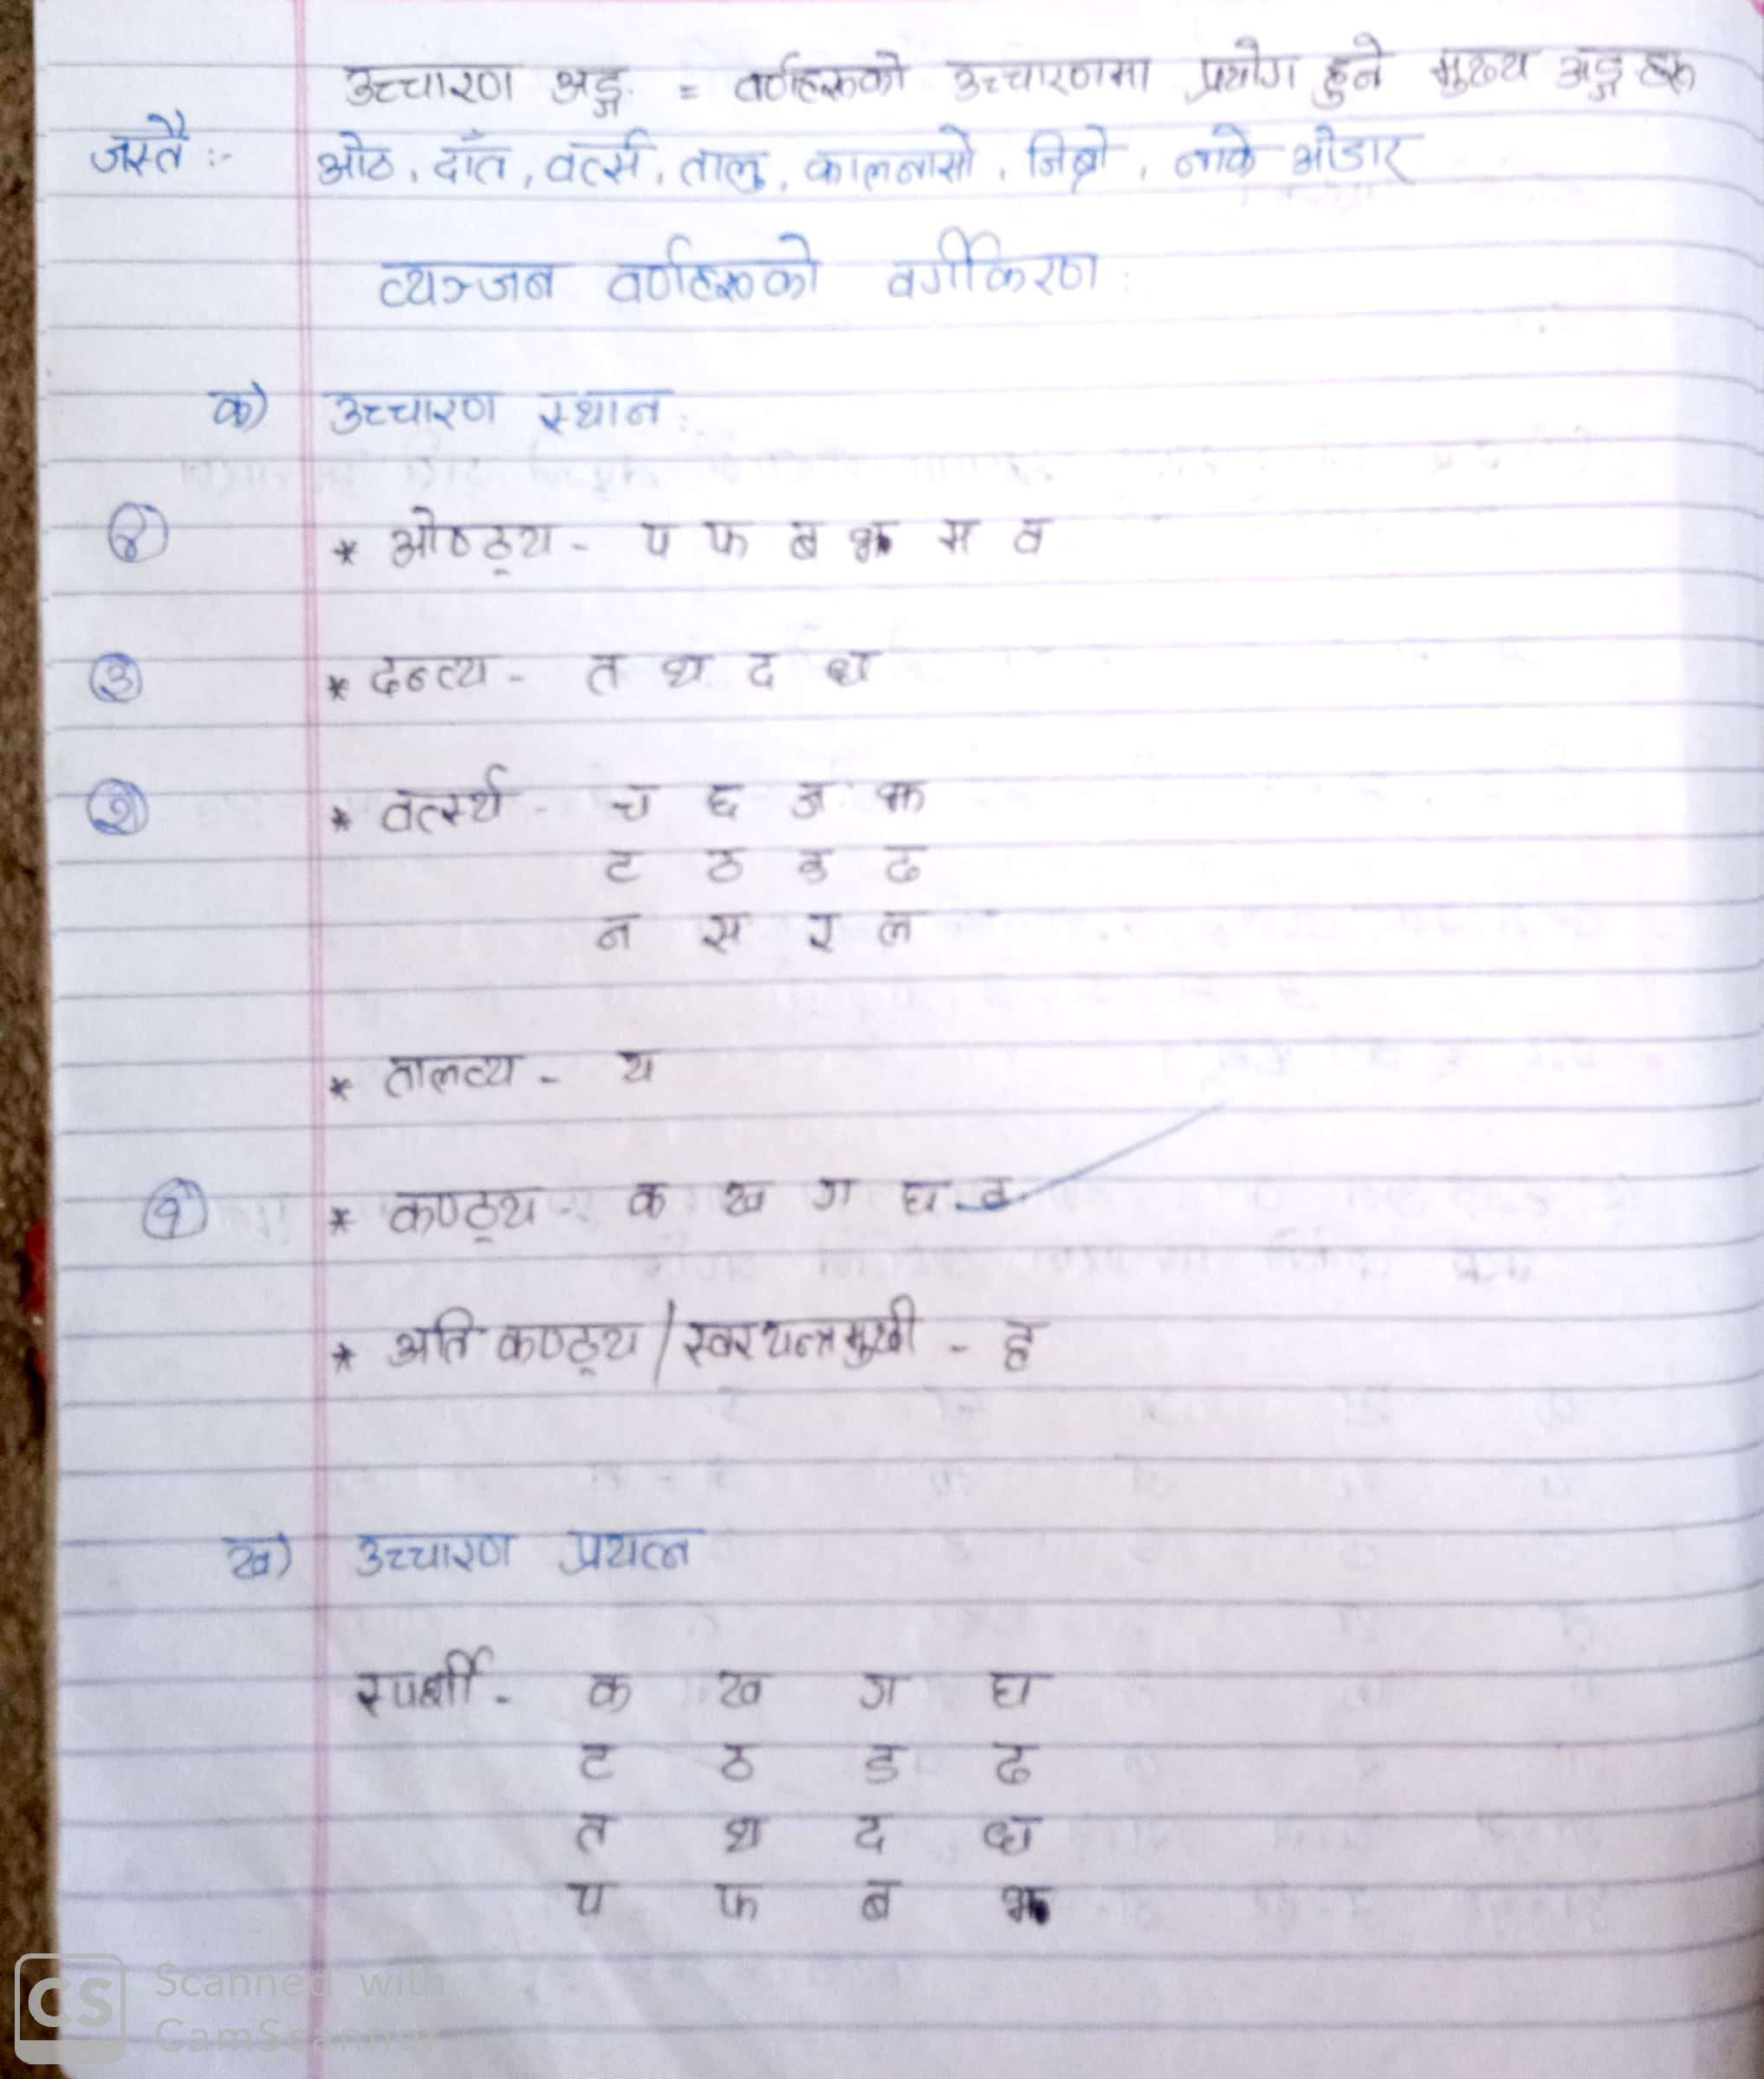 उच्चारण अङ्ग = वर्णहरूको उच्चारणमा प्रयोग हुने मुख्य अङ्गहरू
जस्तै :- ओठ, दाँत, वर्त्स, तालु, कालनासो, जिब्रो, नाके ओडार
व्यञ्जन वर्णहरूको वर्गीकरण :
क) उच्चारण स्थान :
४ * ओष्ठ्य - प फ ब भ म व
३ * दन्त्य - त थ द ध
२ * वर्त्स्य - च छ ज झ
ट ठ ड ढ
न स र ल
* तालव्य - य
१ * कण्ठ्य - क ख ग घ ङ
* अति कण्ठ्य / स्वरयन्त्रमुखी - ह
ख) उच्चारण प्रयत्न
स्पर्शी - क ख ग घ
ट ठ ड ढ
त थ द ध
प फ ब भ
CS Scanned with
CamScanner